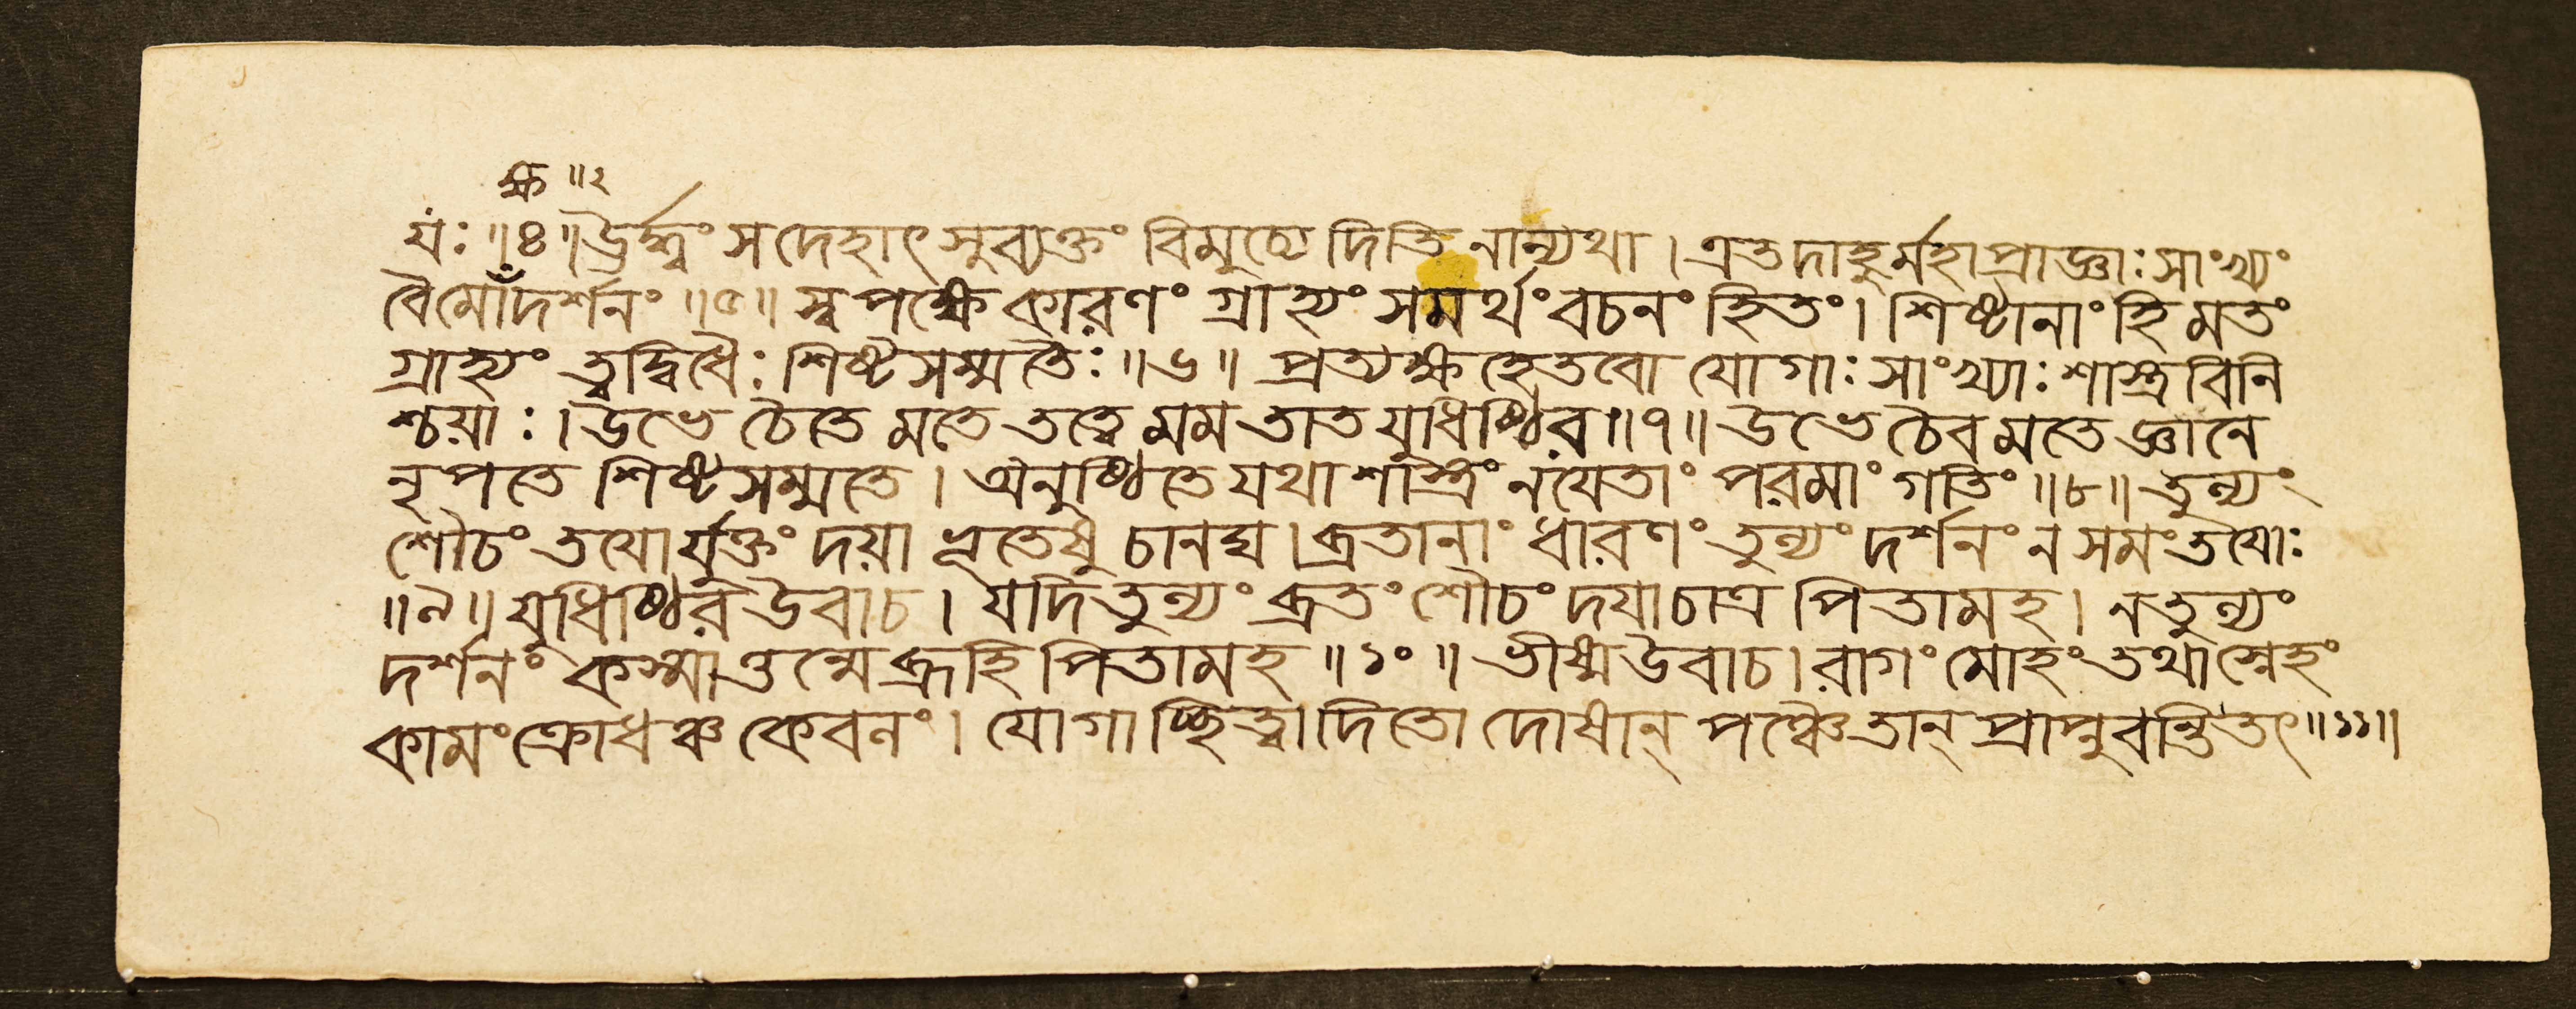 ক্ষ ॥২
যঃ ॥৪॥ ঊর্দ্ধ্বং স দেহাৎ সুব্যক্তং বিমুচ্যেদিতি নান্যথা । এতদাহুর্মহাপ্রাজ্ঞাঃ সাংখ্যং
বৈ মোঁদর্শনং ॥৫॥ স্বপক্ষে কারণং গ্রাহ্যং সমর্থং বচনং হিতং । শিষ্টানাং হি মতং
গ্রাহ্যং ত্বদ্বিধৈঃ শিষ্টসম্মতৈঃ ॥৬॥ প্রত্যক্ষহেতবো যোগাঃ সাংখ্যাঃ শাস্ত্রবিনি
শ্চয়াঃ । উভে চৈতে মতে তত্ত্বে মম তাত যুধিষ্ঠির ॥৭॥ উভে চৈব মতে জ্ঞানে
নৃপতে শিষ্টসম্মতে । অনুষ্ঠিতে যথাশাস্ত্রং নযেতাং পরমাং গতিং ॥৮॥ তুল্যং
শৌচং তযোর্যুক্তং দয়া ভূতেষু চানঘ । ব্রতানাং ধারণং তুল্যং দর্শনং ন সমং তযোঃ
॥৯॥ যুধিষ্ঠির উবাচ । যদি তুল্যং ব্রতং শৌচং দযা চাত্র পিতামহ । ন তুল্যং
দর্শনং কস্মাত্তন্মে ব্রূহি পিতামহ ॥১০॥ ভীষ্ম উবাচ । রাগং মোহং তথা স্নেহং
কামং ক্রোধঞ্চ কেবলং । যোগাচ্ছিত্ত্বাদিতো দোষান্ পঞ্চৈতান্ প্রাপ্নুবন্তি তৎ ॥১১॥